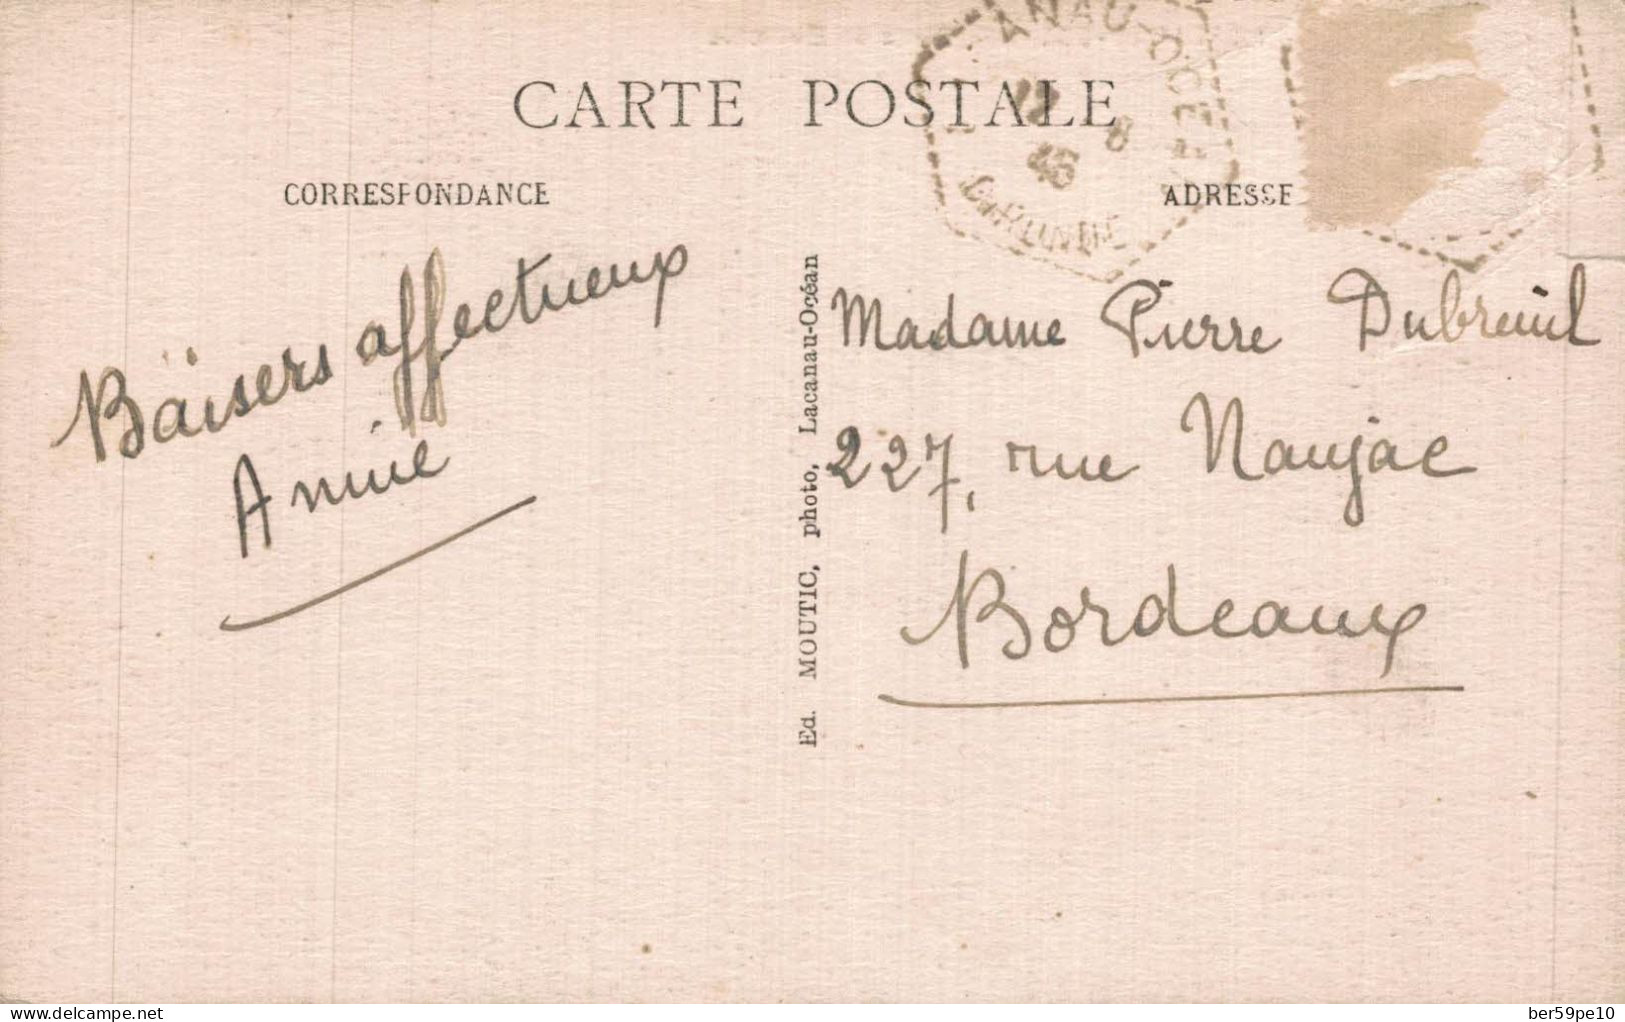 CARTE POSTALE
CORRESPONDANCE
ADRESSE
ANAU-OCÉ
12 8
46
GIRONDE
Baisers affectueux
Annie
Ed. MOUTIC, photo, Lacanau-Océan
Madame Pierre Dubreuil
227, rue Naujac
Bordeaux
delcampe.net
ber59pe10